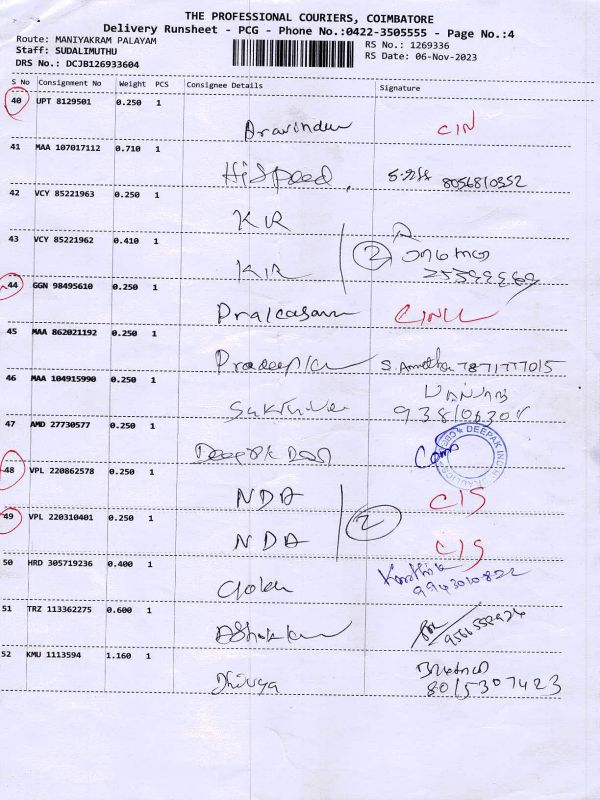 THE PROFESSIONAL COURIERS, COIMBATORE
Delivery Runsheet - PCG - Phone No.:0422-3505555 - Page No.:4
Route: MANIYAKRAM PALAYAM
RS No.: 1269336
Staff: SUDALIMUTHU
RS Date: 06-Nov-2023
DRS No.: DCJB126933604
S No Consignment No Weight PCS Consignee Details Signature
40 UPT 8129501 0.250 1
Aravindan CIN
41 MAA 107017112 0.710 1
HiSpeed, 8056810552
42 VCY 85221963 0.250 1
KR
43 VCY 85221962 0.410 1
KR 2
44 GGN 98495610 0.250 1
Prakasam
45 MAA 862021192 0.250 1
Pradeep 7871777015
46 MAA 104915990 0.250 1
47 AMD 27730577 0.250 1
Deepak DEEPAK
48 VPL 220862578 0.250 1
NDA CIS
49 VPL 220310401 0.250 1
NDA 2 CIS
50 HRD 305719236 0.400 1
Gokul 9943010822
51 TRZ 113362275 0.600 1
Ashok 9566558926
52 KMU 1113594 1.160 1
Dhivya 8015307423